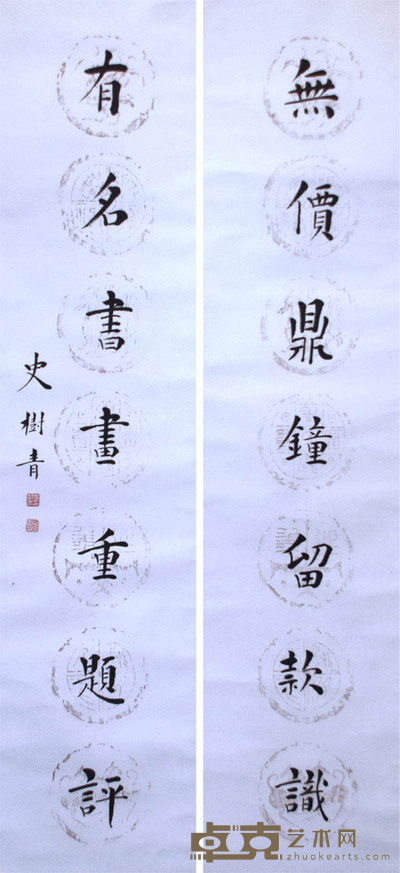 無價鼎鐘留款識
有名書畫重題評
史樹青
卓克艺术网
zhuokearts.com